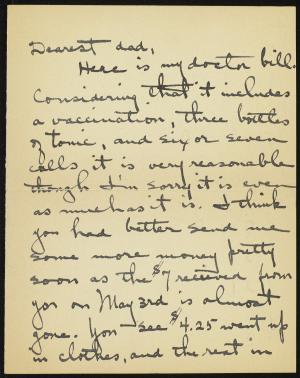 Dearest dad,
Here is my doctor bill.
Considering that it includes
a vaccination, three bottles
of tonic, and six or seven
calls it is very reasonable
though I'm sorry it is even
as much as it is. I think
you had better send me
some more money pretty
soon as the $7 received from
you on May 3rd is almost
gone. You see $4.25 went up
in clothes, and the rest in